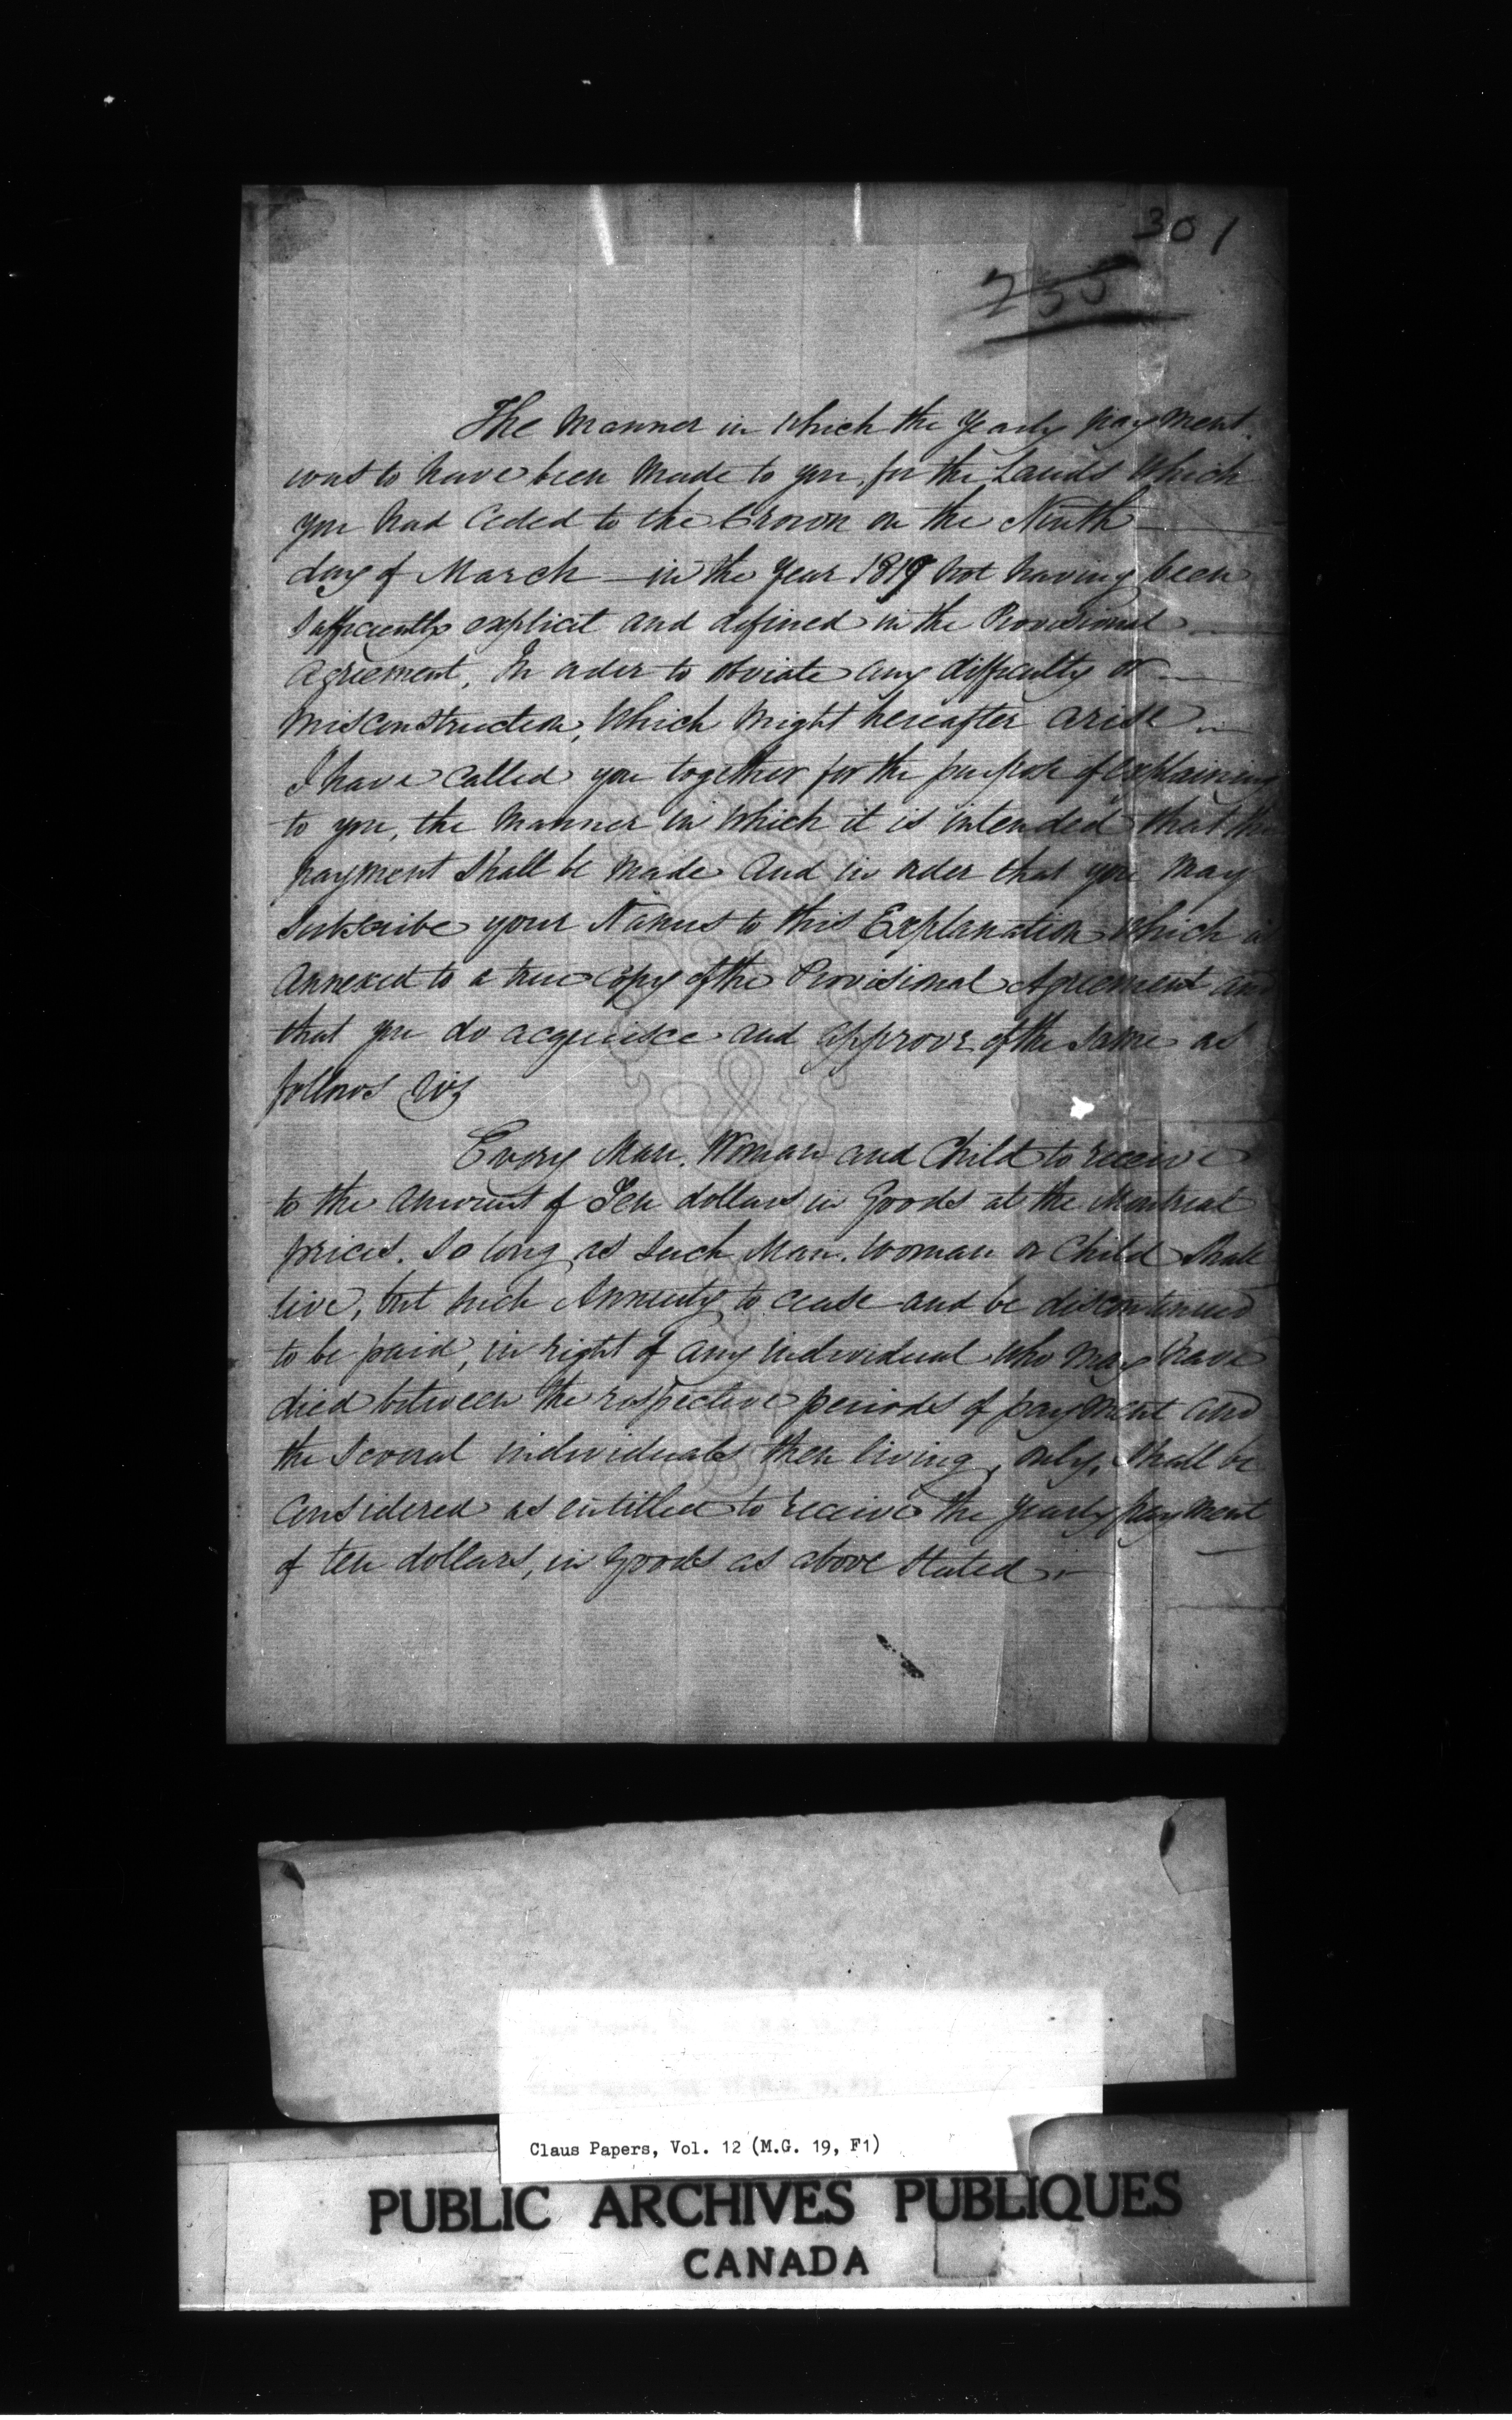 301
255
The Manner in which the Yearly payment
was to have been Made to you, for the Lands Which
you had Ceded to the Crown on the Ninth
day of March in the Year 1819 Not having been
Sufficiently explicit and defined in the Provisional
agreement, In order to obviate any difficulty or
Misconstruction, Which Might hereafter arise
I have Called you together for the purpose of explaining
to you, the Manner in Which it is intended that the
payment Shall be Made And in order that you May
Subscribe your Names to this Explanation which is
Annexed to a true Copy of the Provisional Agreement and
that you do acquiesce and approve of the Same as
follows Viz
Every Man, Woman and Child to receive
to the Amount of Ten dollars in Goods at the Montreal
prices. So long as Such Man. Woman or Child Shall
live, but Such Annuity to cease and be discontinued
to be paid, in right of any individual who May have
died between the respective periods of payment and
the Several individuals then living, only, Shall be
Considered as entitled to receive the Yearly payment
of ten dollars, in Goods as above Stated
Claus Papers, Vol. 12 (M.G. 19, F1)
PUBLIC ARCHIVES PUBLIQUES
CANADA